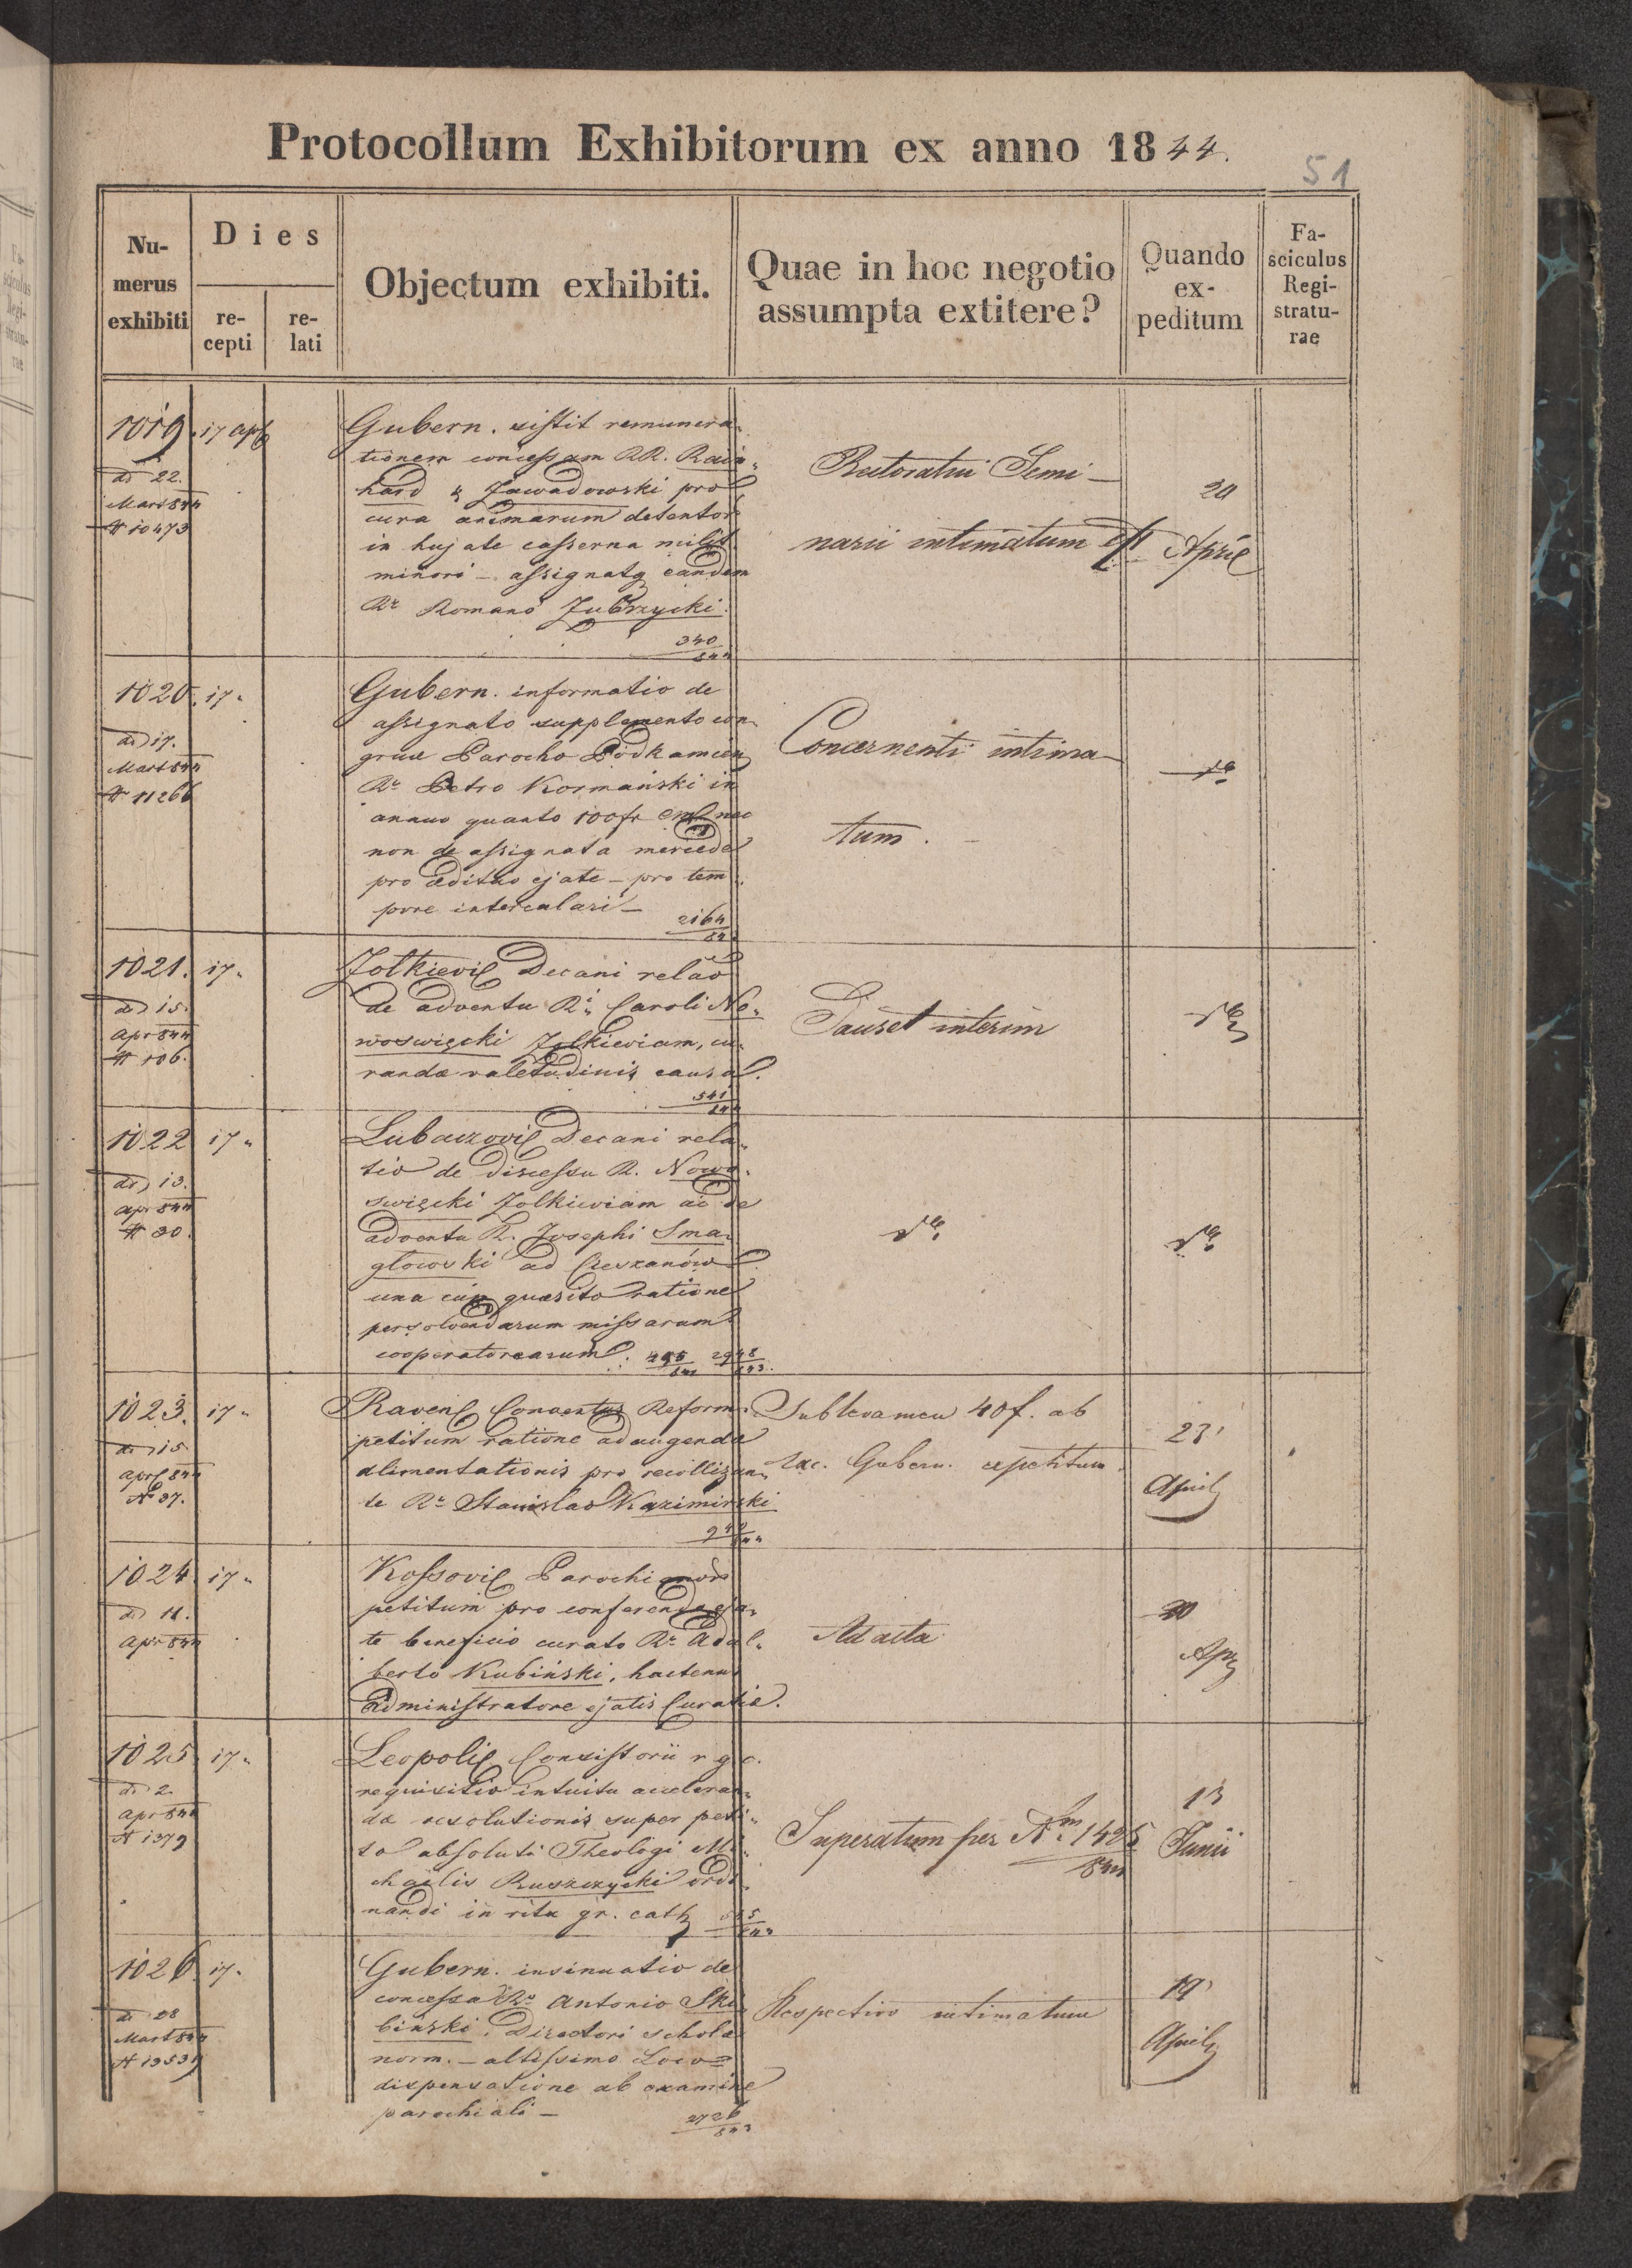 Protocollum Exhibitorum ex anno 1844.
51
Nu-
merus
exhibiti
Dies
re-
cepti
re-
lati
Objectum exhibiti.
Quae in hoc negotio
assumpta extitere?
Quando
ex-
peditum
Fa-
sciculus
Regi-
stratu-
rae
1019. 17 Apr
dd 22.
Mart 844
N 10473
Gubern. sistit remunera-
tionem concessam RR. Rain-
hard & Zawadowski pro
cura animarum detentor
in hujate casserna milit
minori – assignatq eandem
Rr Romano Zubrzycki.
340
844
Rectoratui Semi-
narii intimatum est
20
April
1020. 17 "
dd 17.
Mart 844
N 11266
Gubern. informatio de
assignato supplemento con-
gruae Parocho Podkamien
Ro Petro Kormański in
annuo quanto 100 fr CM nec
non de assignata mercede
pro aedituo ejate – pro tem-
pore intercalari –
2164
Concernenti intima-
tum. –
1021. 17 "
dd 15.
Apr 844
N 106.
Zolkievi Decani relao
de adventu Ri Caroli No-
woswięcki Zolkieviam, cu-
randae valetudinis causa.
541
844
Dauset interim
1022 17 "
dd 13.
Apr 844
N 30.
Lubaczovi Decani rela-
tio de discessu R. Nowo-
swięcki Zolkieviam ac de
adventu R. Josephi Sma-
głowski ad Cieszanów
una cum quaesito ratione
persolvendarum missarum
cooperatorearum.
495
844
2948
843.
1023. 17 "
dd 15
Apr 844
N 37.
Raven Conventus Reform.
petitum ratione adaugendae
alimentationis pro recolligan-
te Ro Stanislao Kazimirski
Sublevamen 40 f. ab
Exc. Gubern. expetitum.
23
April
1024. 17 "
dd 11.
Apr 844
Kossovi Parochianor
petitum pro conferendo eja-
te beneficio curato Ro Adal-
berto Kubiński, hactenus
administratore ejatis Curatiae.
Ad acta
20
Apr
1025. 17 "
dd 2.
Apr 844
N 1379
Leopoli Consistorii r g c.
requisitio intuitu acceleran-
dae resolutionis super peti-
to absoluti Theologi Mi-
chaelis Ruszczycki ordi-
nandi in ritu gr. cath
Superatum per Nm 1425
844
13
Junii
1026. 17 "
dd 28
Mart 844
N 13539
Gubern. insinuatio de
concessa Ro Antonio Ski-
binski, Directori scholae
norm. – altissimo Loco
dispensatione ab examine
parochiali –
2726
843
Respectivo intimatum
19
April